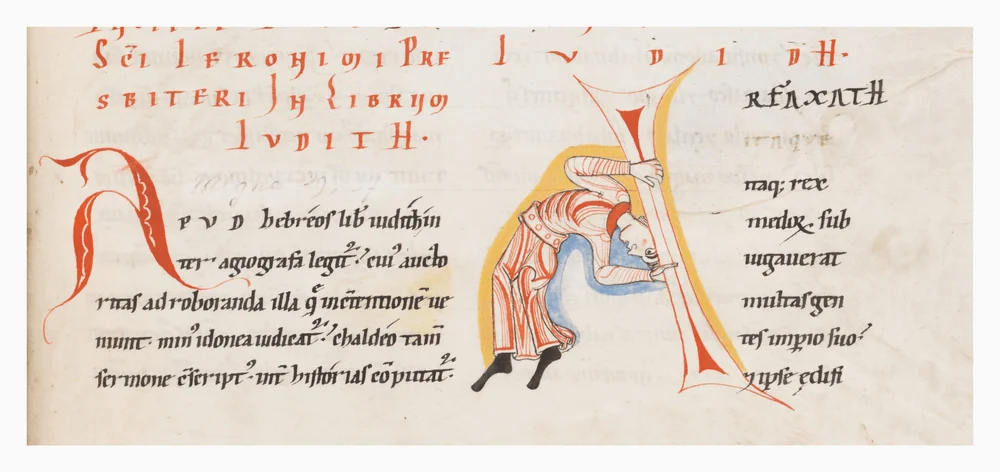 SCI IERONIMI PRE
SBITERI IN LIBRUM
IUDITH.
APUD hebreos lib iudith in
ter agiografa legit; cui aucto
ritas ad roboranda illa q̄ in ctentione ue
niunt. min idonea iudicat; chaldeo tam
sermone cscript int historias coputat.
IUDITH.
ARFAXATH
itaq; rex
medox sub
iugauerat
multas gen
tes impio suo
7 ipse ędifi